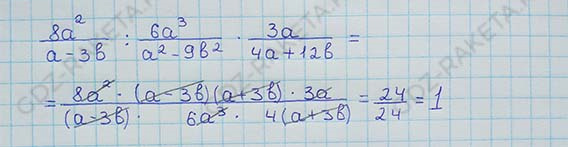 8a²/(a-3в) : 6a³/(a²-9в²) · 3a/(4a+12в) =
= (8a² · (a-3в)(a+3в) · 3a)/((a-3в) · 6a³ · 4(a+3в)) = 24/24 = 1
GDZ-RAKETA.RU